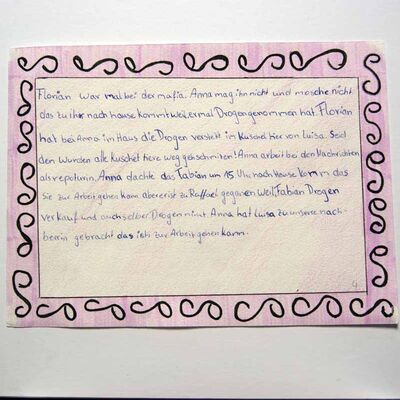 Florian war mal bei der mafia. Anna mag ihn nicht und mösche nicht
das zu ihr nach hause kommt weil er mal Drogen genommen hat. Florian
hat bei Anna im Haus die Drogen versteckt im Kuschel tier von Luisa. Seid
den wurden alle kuschel tiere weg geschmiten! Anna arbeit bei den Nachrichten
als reportirin. Anna dachte das Fabian um 15 Uhr nach Hause komm das
Sie zur Arbeit gehen kann aber er ist zu Raffael gegangen weil, Fabian Drogen
verkauf und auch selber Drogen nimt. Anna hat Luisa zu unserer nach-
berin gebracht das sie zur Arbeit gehen kann.
4